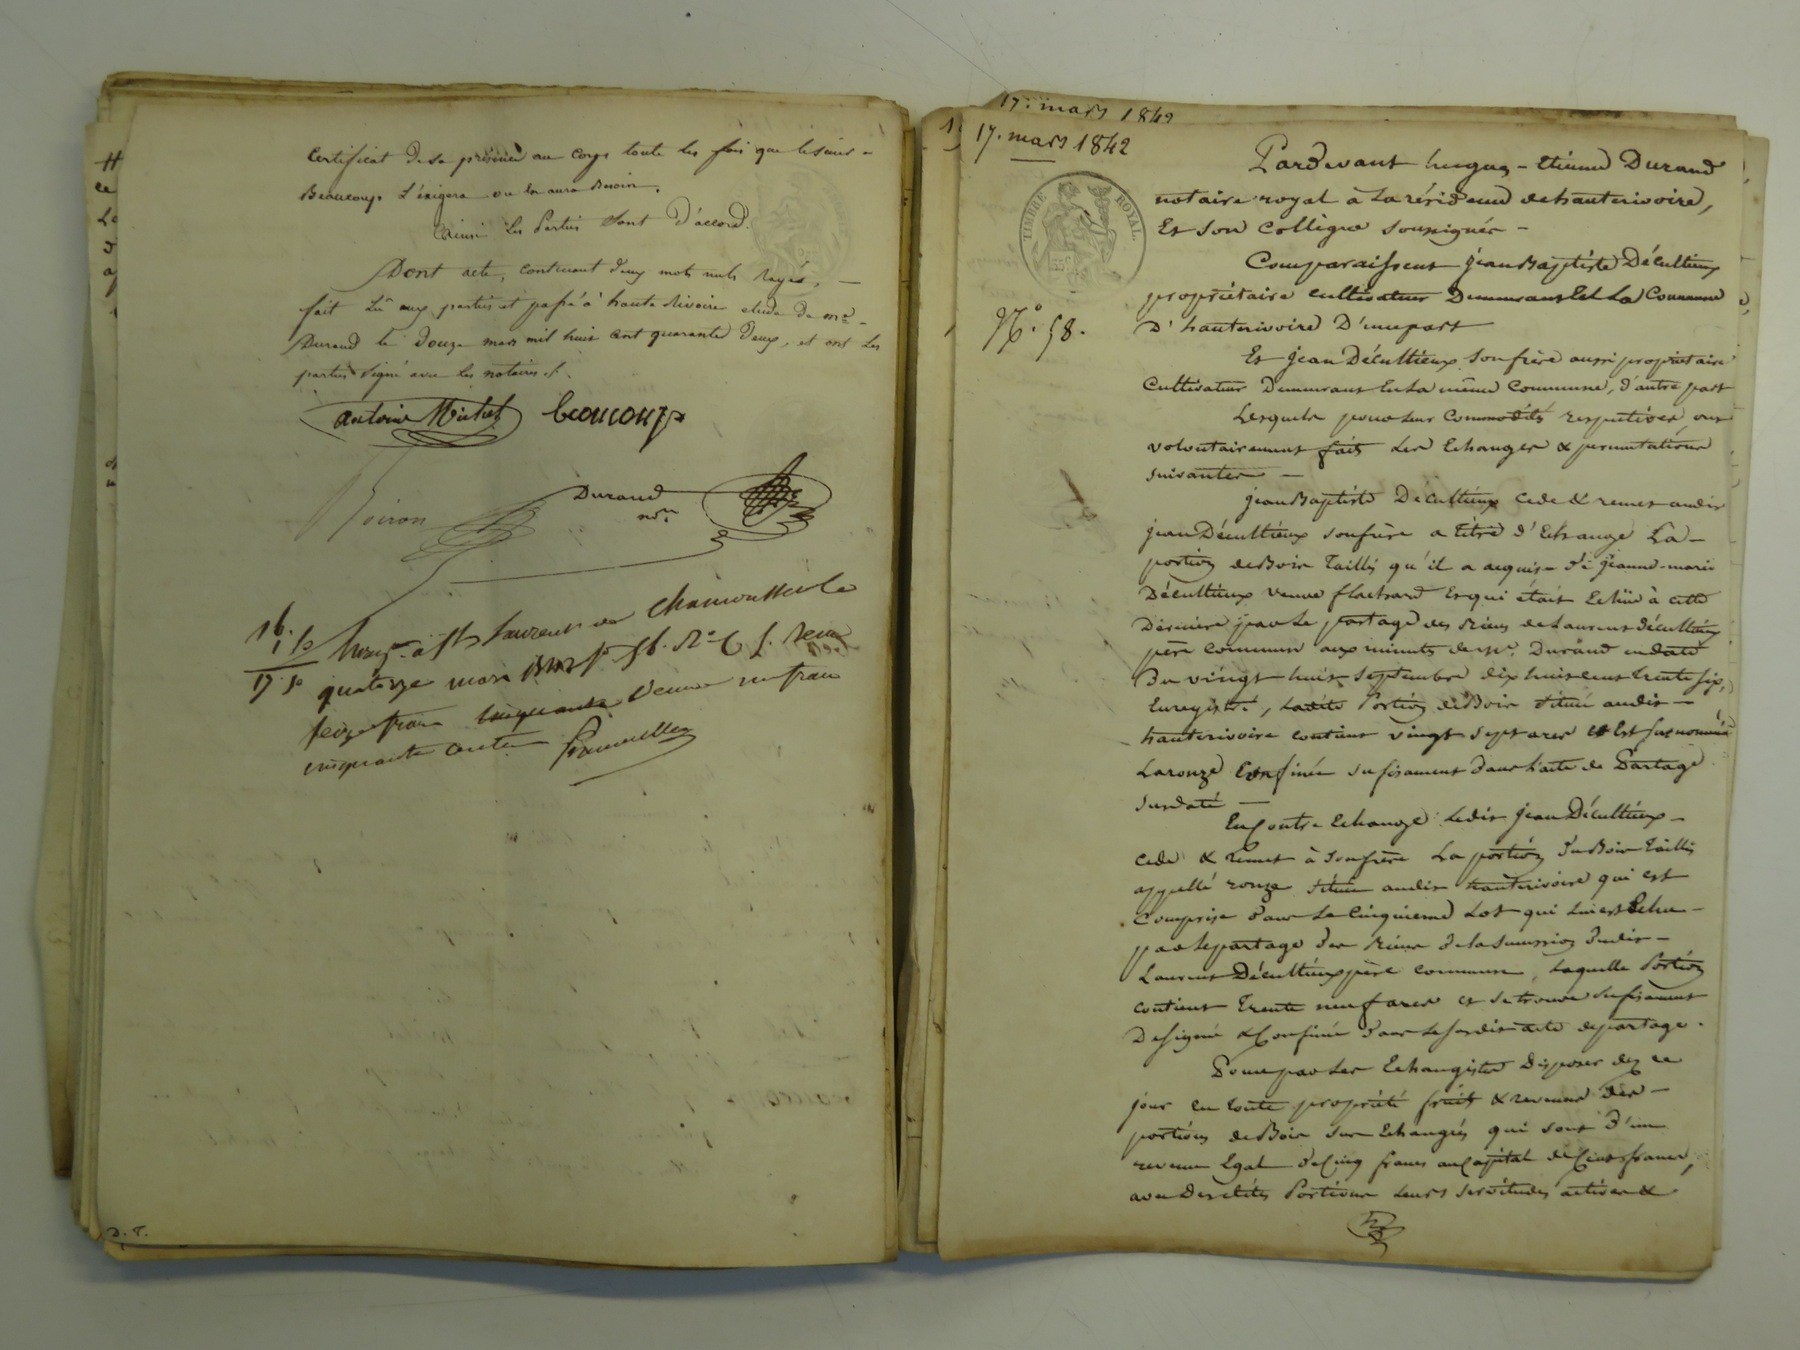 certificat de sa présence au corps toute les fois que le sieur -
Beaucoup l'éxigera ou en aura Besoin.
Ainsi les Parties sont d'accord.
Dont acte, contenant deux mots nuls rayés, -
fait Lû aux parties et passé à haute Rivoire etude de me -
Durand le douze mars mil huit cent quarante deux, et ont les
parties signé avec les notaires ./.
antoine Michel Beaucoup
Durand
nore
Poiron
16, 50
1,
17 50
Enregé à St Laurent de Chamousset le
quatorze mars 1842 fo 58. Ro C 6. Reçu
seize francs cinquante Décime un franc
cinquante centimes
D. T.
17. mars 1842
17. mars 1842
TIMBRE ROYAL
No. 58.
Pardevant hugues - Etienne Durand
notaire royal à La résidence de hauterivoire,
Et son Collègue soussignés -
Comparaissent jean Baptiste Décultieux
propriétaire cultivateur Demeurant En La Commune
D'hauterivoire D'unepart
Et jean Décultieux son frère aussi propriétaire
Cultivateur Demeurant En La même Commune, d'autre part
Lesquels pour Leur Commodités respectives ont
volontairement fait Les Echanges & permutations
suivantes -
jean Baptiste Décultieux cede & remet audit
jean Décultieux son frère a titre d'Echange La -
portion de Bois Taillis qu'il a acquise de jeanne-marie
Décultieux veuve flachard Et qui était Echüe à cette
Dernière par Le partage des Biens de Laurent Décultieux
père commun aux minutes de me. Durand en date
Du vingt huit septembre dix huit cent trente six,
Enregistré, Ladite Portion de Bois située audit -
hauterivoire contient vingt sept ares et Est surnommée
Laronze Confinée sufisament dans L'acte de Partage
susdaté -
En Contre Echange Ledit jean Décultieux -
cede & remet à son frère La portion du Bois Taillis
appellé ronze située audit hauterivoire qui est
Comprise dans Le Cinquieme Lot qui Lui est Echu -
par Le partage des Biens de La succession dudit -
Laurent Décultieux père commun, Laquelle Portion
contient Trente neuf ares et se trouve sufisament
Designée & Confinée dans Le susdit acte de partage.
Pour par Les Echangistes Disposer dez ce
jour en toute propriété fruits & revenus des -
portions de Bois sus Echangées qui sont D'un
revenu Egal de Cinq francs au Capital de Cent francs,
avec Desdites Portions Leurs servitudes actives &